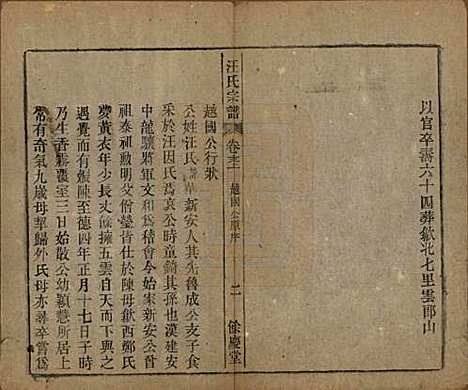 以官卒壽六十四葬歙北七里雲郎山
汪氏宗譜
卷之
越國公
二
餘慶堂
越國公行狀
公姓汪氏諱華新安人其先魯成公支子食
采於汪因氏焉哀公時童錡其孫也漢建安
中龍驤將軍文和為會稽令始家新安公曾
祖泰祖勲明父僧瑩仕於陳母歙西鄭氏
夢黃衣年少長丈餘擁五雲自天而下與之
遇覺而有娠陳至德四年正月十七日子時
乃生香霧覆室三日始散公幼穎慧所居上
常有奇氣九歲母率歸外氏母亦尋卒嘗為